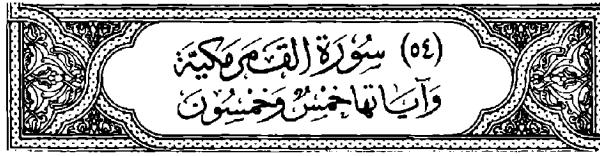 (٥٤) سُورَةُ القَمَرِ مَكِيَّة
وَآيَاتُهَا خَمْسٌ وَخَمْسُونَ